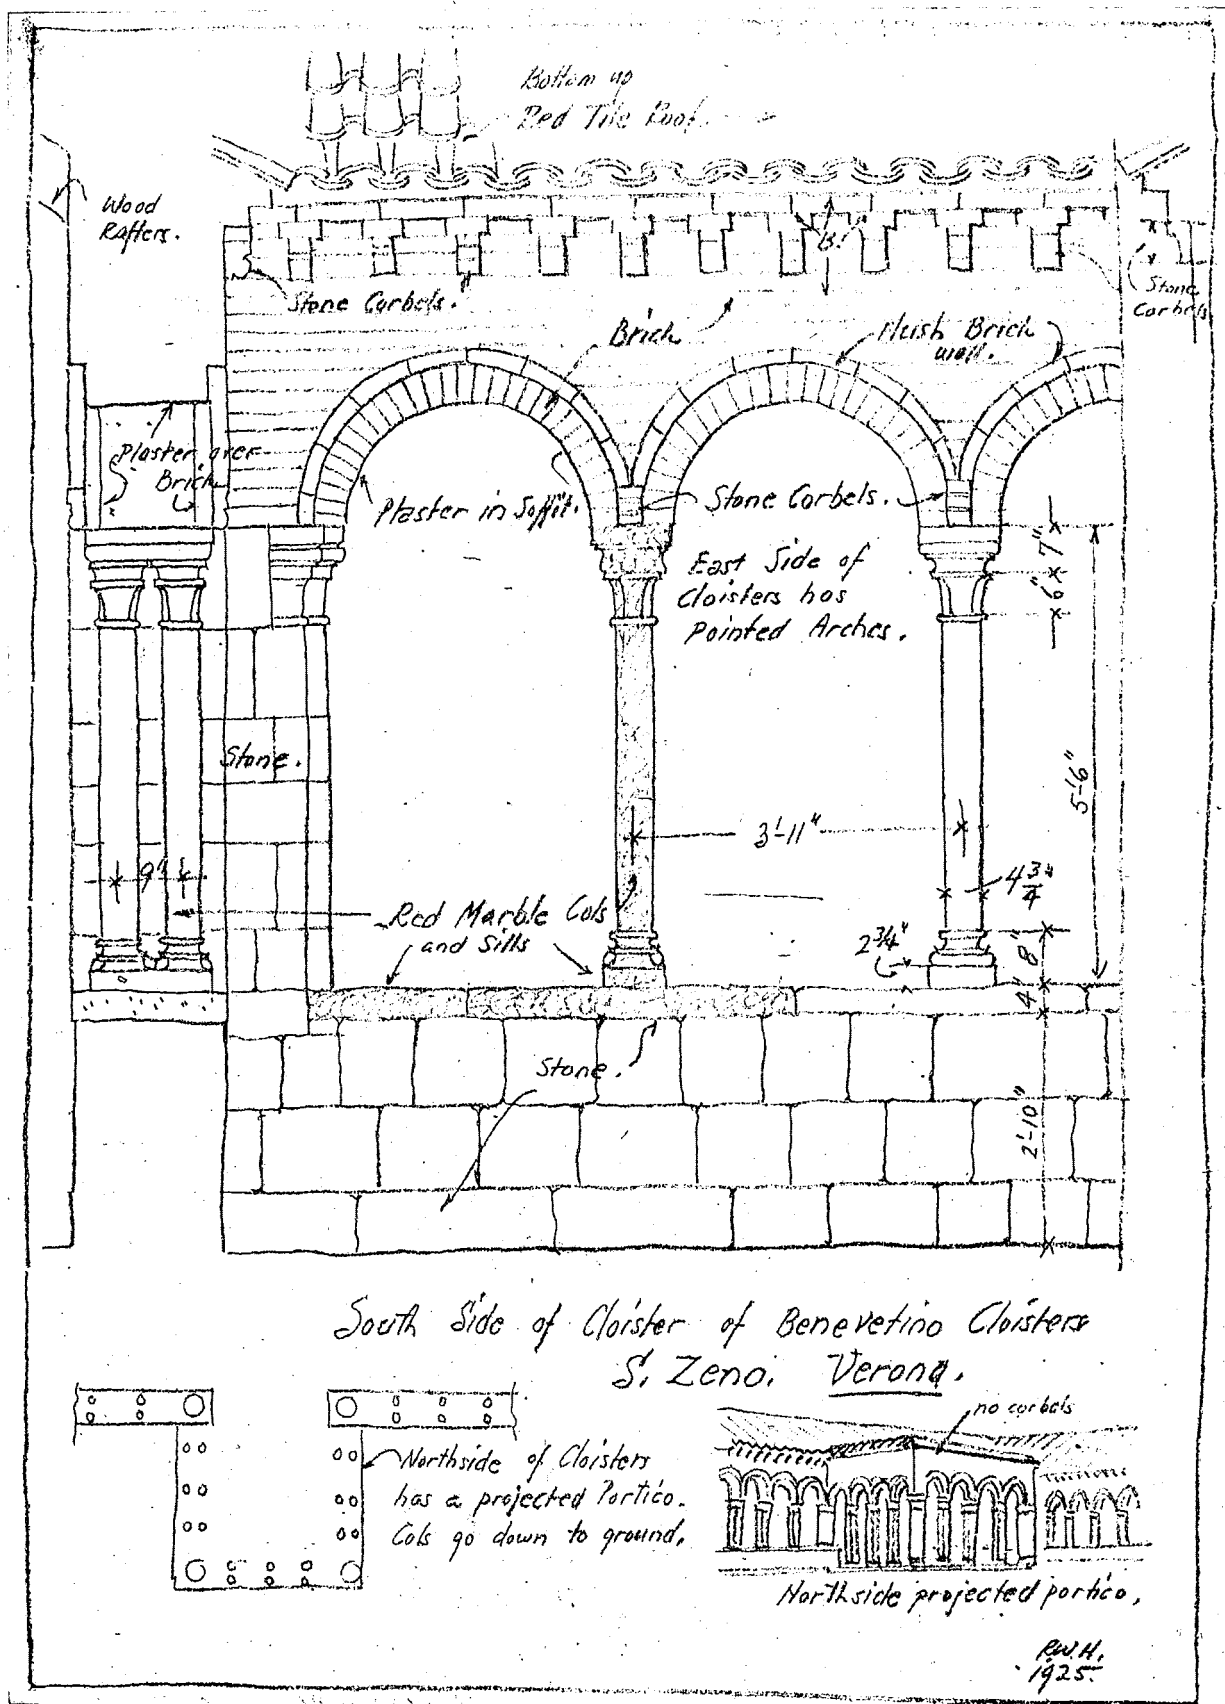 Bottom up
Red Tile Roof.
Wood
Rafters.
Stone Corbels.
13"
Stone
Corbels
Brick
Flush Brick
wall.
Plaster over
Brick
Plaster in Soffit.
Stone Corbels.
East Side of
Cloisters has
Pointed Arches.
7"
6"
Stone.
5'-6"
3'-11"
9"
4 3/4"
Red Marble Cols
and Sills
2 3/4"
8"
4"
Stone.
2'-10"
South Side of Cloister of Benevetino Cloisters
S. Zeno. Verona.
no corbels
Northside of Cloisters
has a projected Portico.
Cols go down to ground.
Northside projected portico.
R.W.H.
1925.